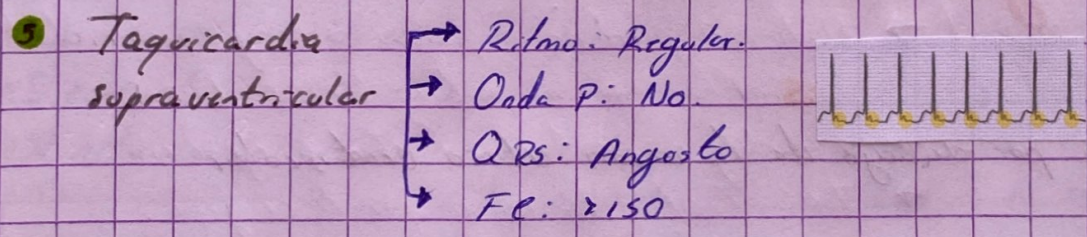 5 Taquicardia
supraventricular
Ritmo: Regular.
Onda P: No.
QRS: Angosto
FC: >150